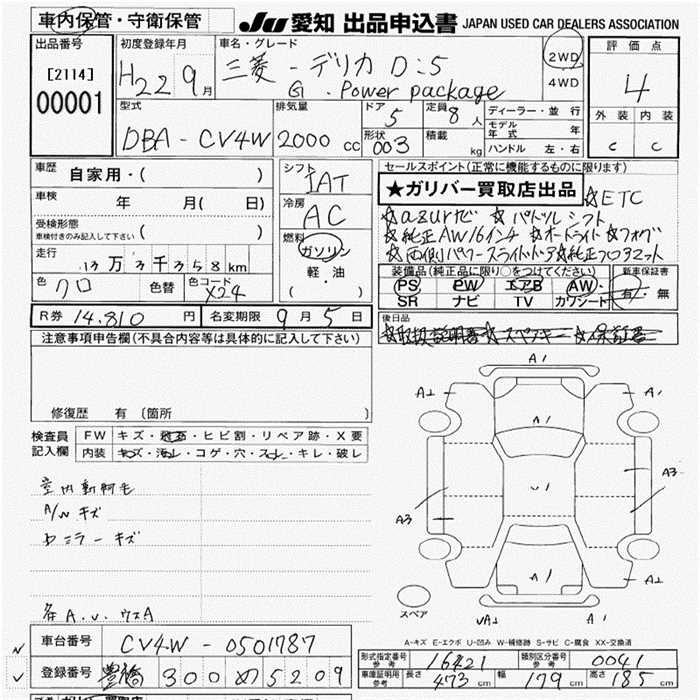 車内保管・守衛保管
JU 愛知 出品申込書 JAPAN USED CAR DEALERS ASSOCIATION
出品番号
[2114]
00001
初度登録年月
H22 9月
車名・グレード
三菱 - デリカ D:5
G . Power package
2WD
4WD
評価点
4
外装 内装
C C
型式
DBA - CV4W
排気量
2000 cc
ドア
5
形状
003
定員
8人
積載
kg
ディーラー・並行
モデル年式 年
ハンドル 左・右
車歴
自家用・( )
車検
年 月( 日)
受検形態
車検付きのみ記入して下さい ( )
走行
13万3千358km
色
クロ
色替
色コード
X24
シフト
IAT
冷房
AC
燃料
ガソリン
軽・油
( )
セールスポイント(正常に機能するものに限ります)
★ガリバー買取店出品 ☆ETC
☆azurナビ ☆パドルシフト
☆純正AW16インチ ☆オートライト ☆フォグ
☆両側パワースライドドア ☆純正フロアマット
装備品(純正品に限り○をつけてください)
PS PW エアB AW
SR ナビ TV カワシート
新車保証書
有・無
R券 14.810 円
名変期限 9月5日
後日品
☆取扱説明書 ☆スペアキー ☆保証書
注意事項申告欄(不具合内容等は具体的に記入して下さい)
修復歴 有 〔箇所 〕
検査員記入欄
FW キズ・飛石・ヒビ割・リペア跡・X要
内装 キズ・汚れ・コゲ・穴・スレ・キレ・破レ
A/W キズ
A1
A2 A1
A1
A3 U1 A3
A1
A2
UA1
スペア
A-キズ E-エクボ U-凹み W-補修跡 S-サビ C-腐食 XX-交換済
車台番号 CV4W - 0501787
登録番号 豊橋 300 め 5209
形式指定番号 参考 16421
類別区分番号 参考 0041
車庫証明用 参考 長さ 473 cm 幅 179 cm 高さ 185 cm